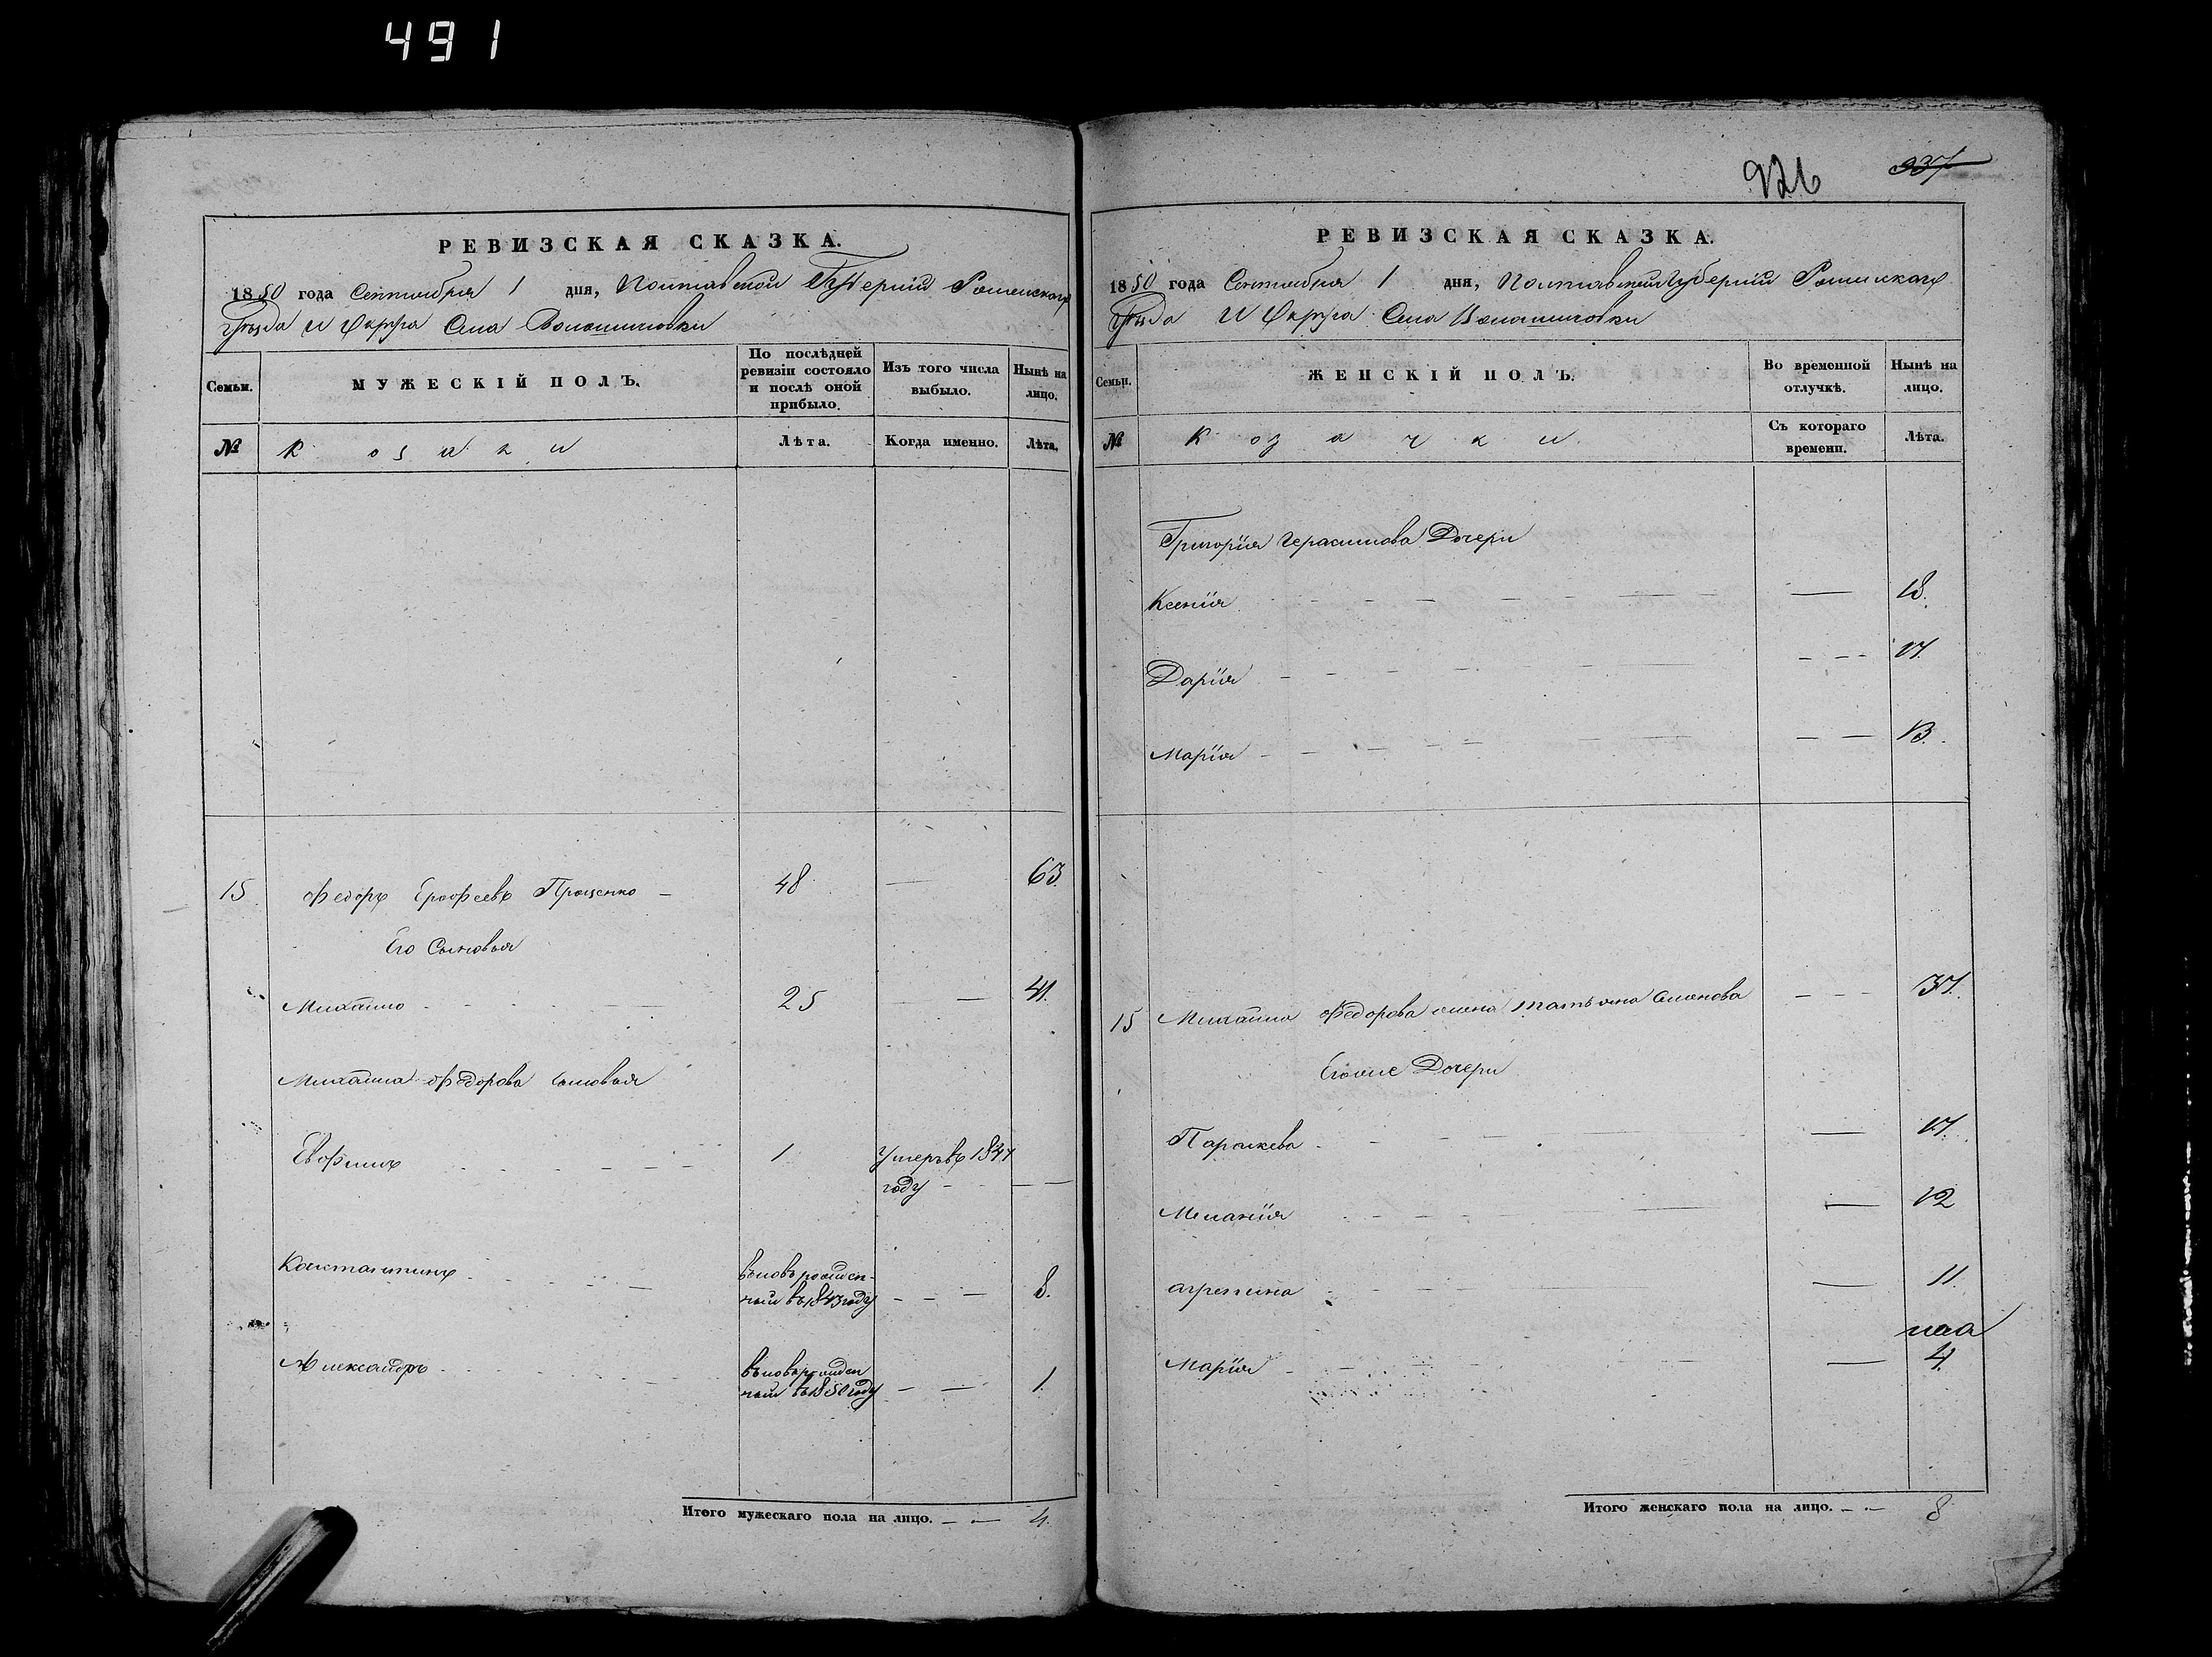 491
926 937
РЕВИЗСКАЯ СКАЗКА.
1850 года Сентября 1 дня, Полтавской Губерніи Роменскаго
Уѣзда и Округа Села Волошиновки
Семьи. МУЖЕСКІЙ ПОЛЪ. По послѣдней ревизіи состояло и послѣ оной прибыло. Изъ того числа выбыло. Нынѣ на лицо.
№ Козаки Лѣта. Когда именно. Лѣта.
15 Федоръ Ерофеевъ Проценко 48 — 63.
Его Сыновья
Михайло 25 — 41.
Михайла Федорова сыновья
Евфимъ 1 Умеръ въ 1841
году —
Константинъ вновь рожден-
ный въ 1843 году — 8.
Александръ вновь рожден
ный въ 1850 году — 1.
Итого мужескаго пола на лицо. — 4.
РЕВИЗСКАЯ СКАЗКА.
1850 года Сентября 1 дня, Полтавской Губерніи Роменскаго
Уѣзда и Округа Села Волошиновки
Семьи. ЖЕНСКІЙ ПОЛЪ. Во временной отлучкѣ. Нынѣ на лицо.
№ Козачки Съ котораго времени. Лѣта.
Григорія Герасимова Дочери
Ксенія — 18.
Дарія — 17.
Марія — 13.
15 Михайла Федорова жена Татьяна Семенова — 37.
Егоже Дочери
Параскева — 17.
Меланія — 12
Агрепина — 11.
Марія — 4.
Итого женскаго пола на лицо. — 8